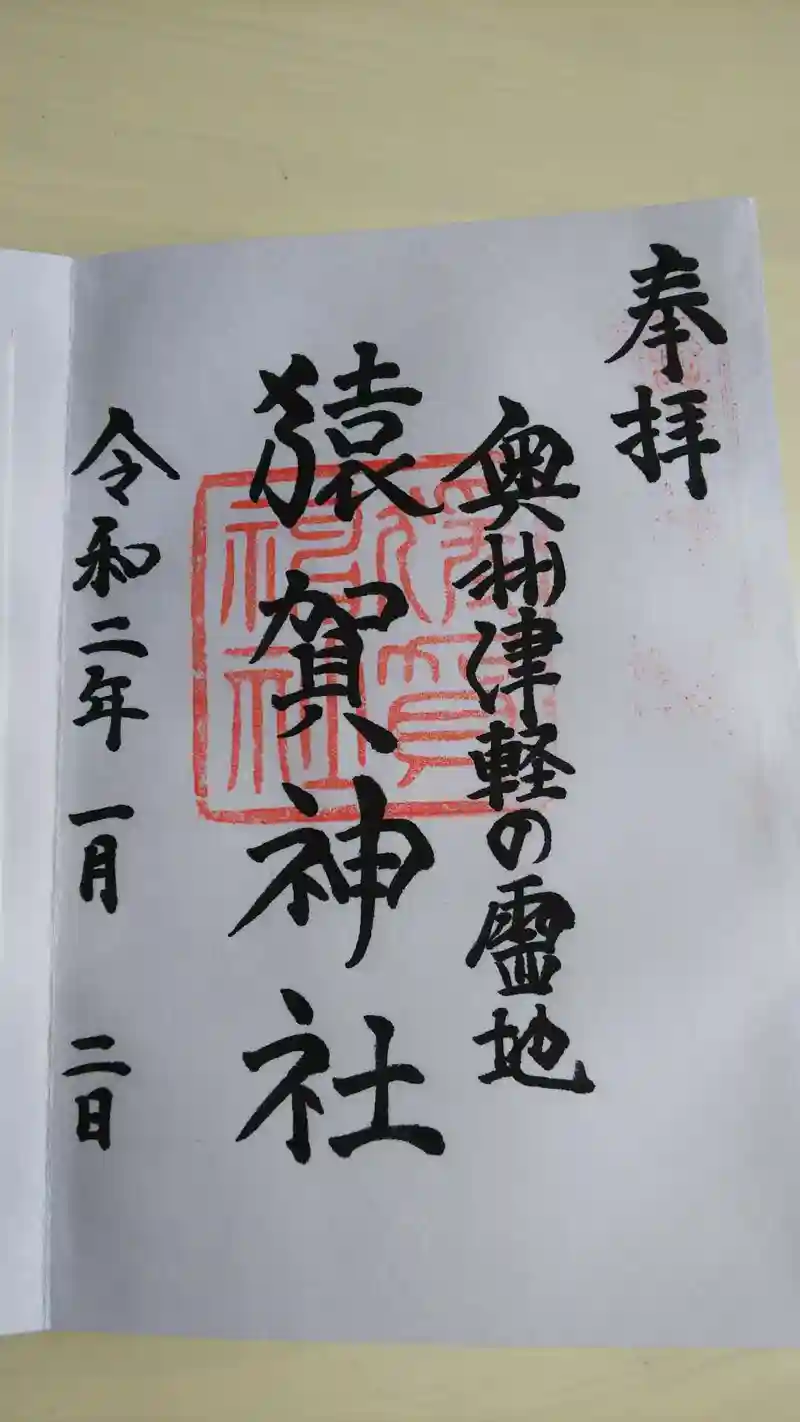 奉拝
奥州津軽の霊地
猿賀神社
令和二年一月二日
猿賀神社